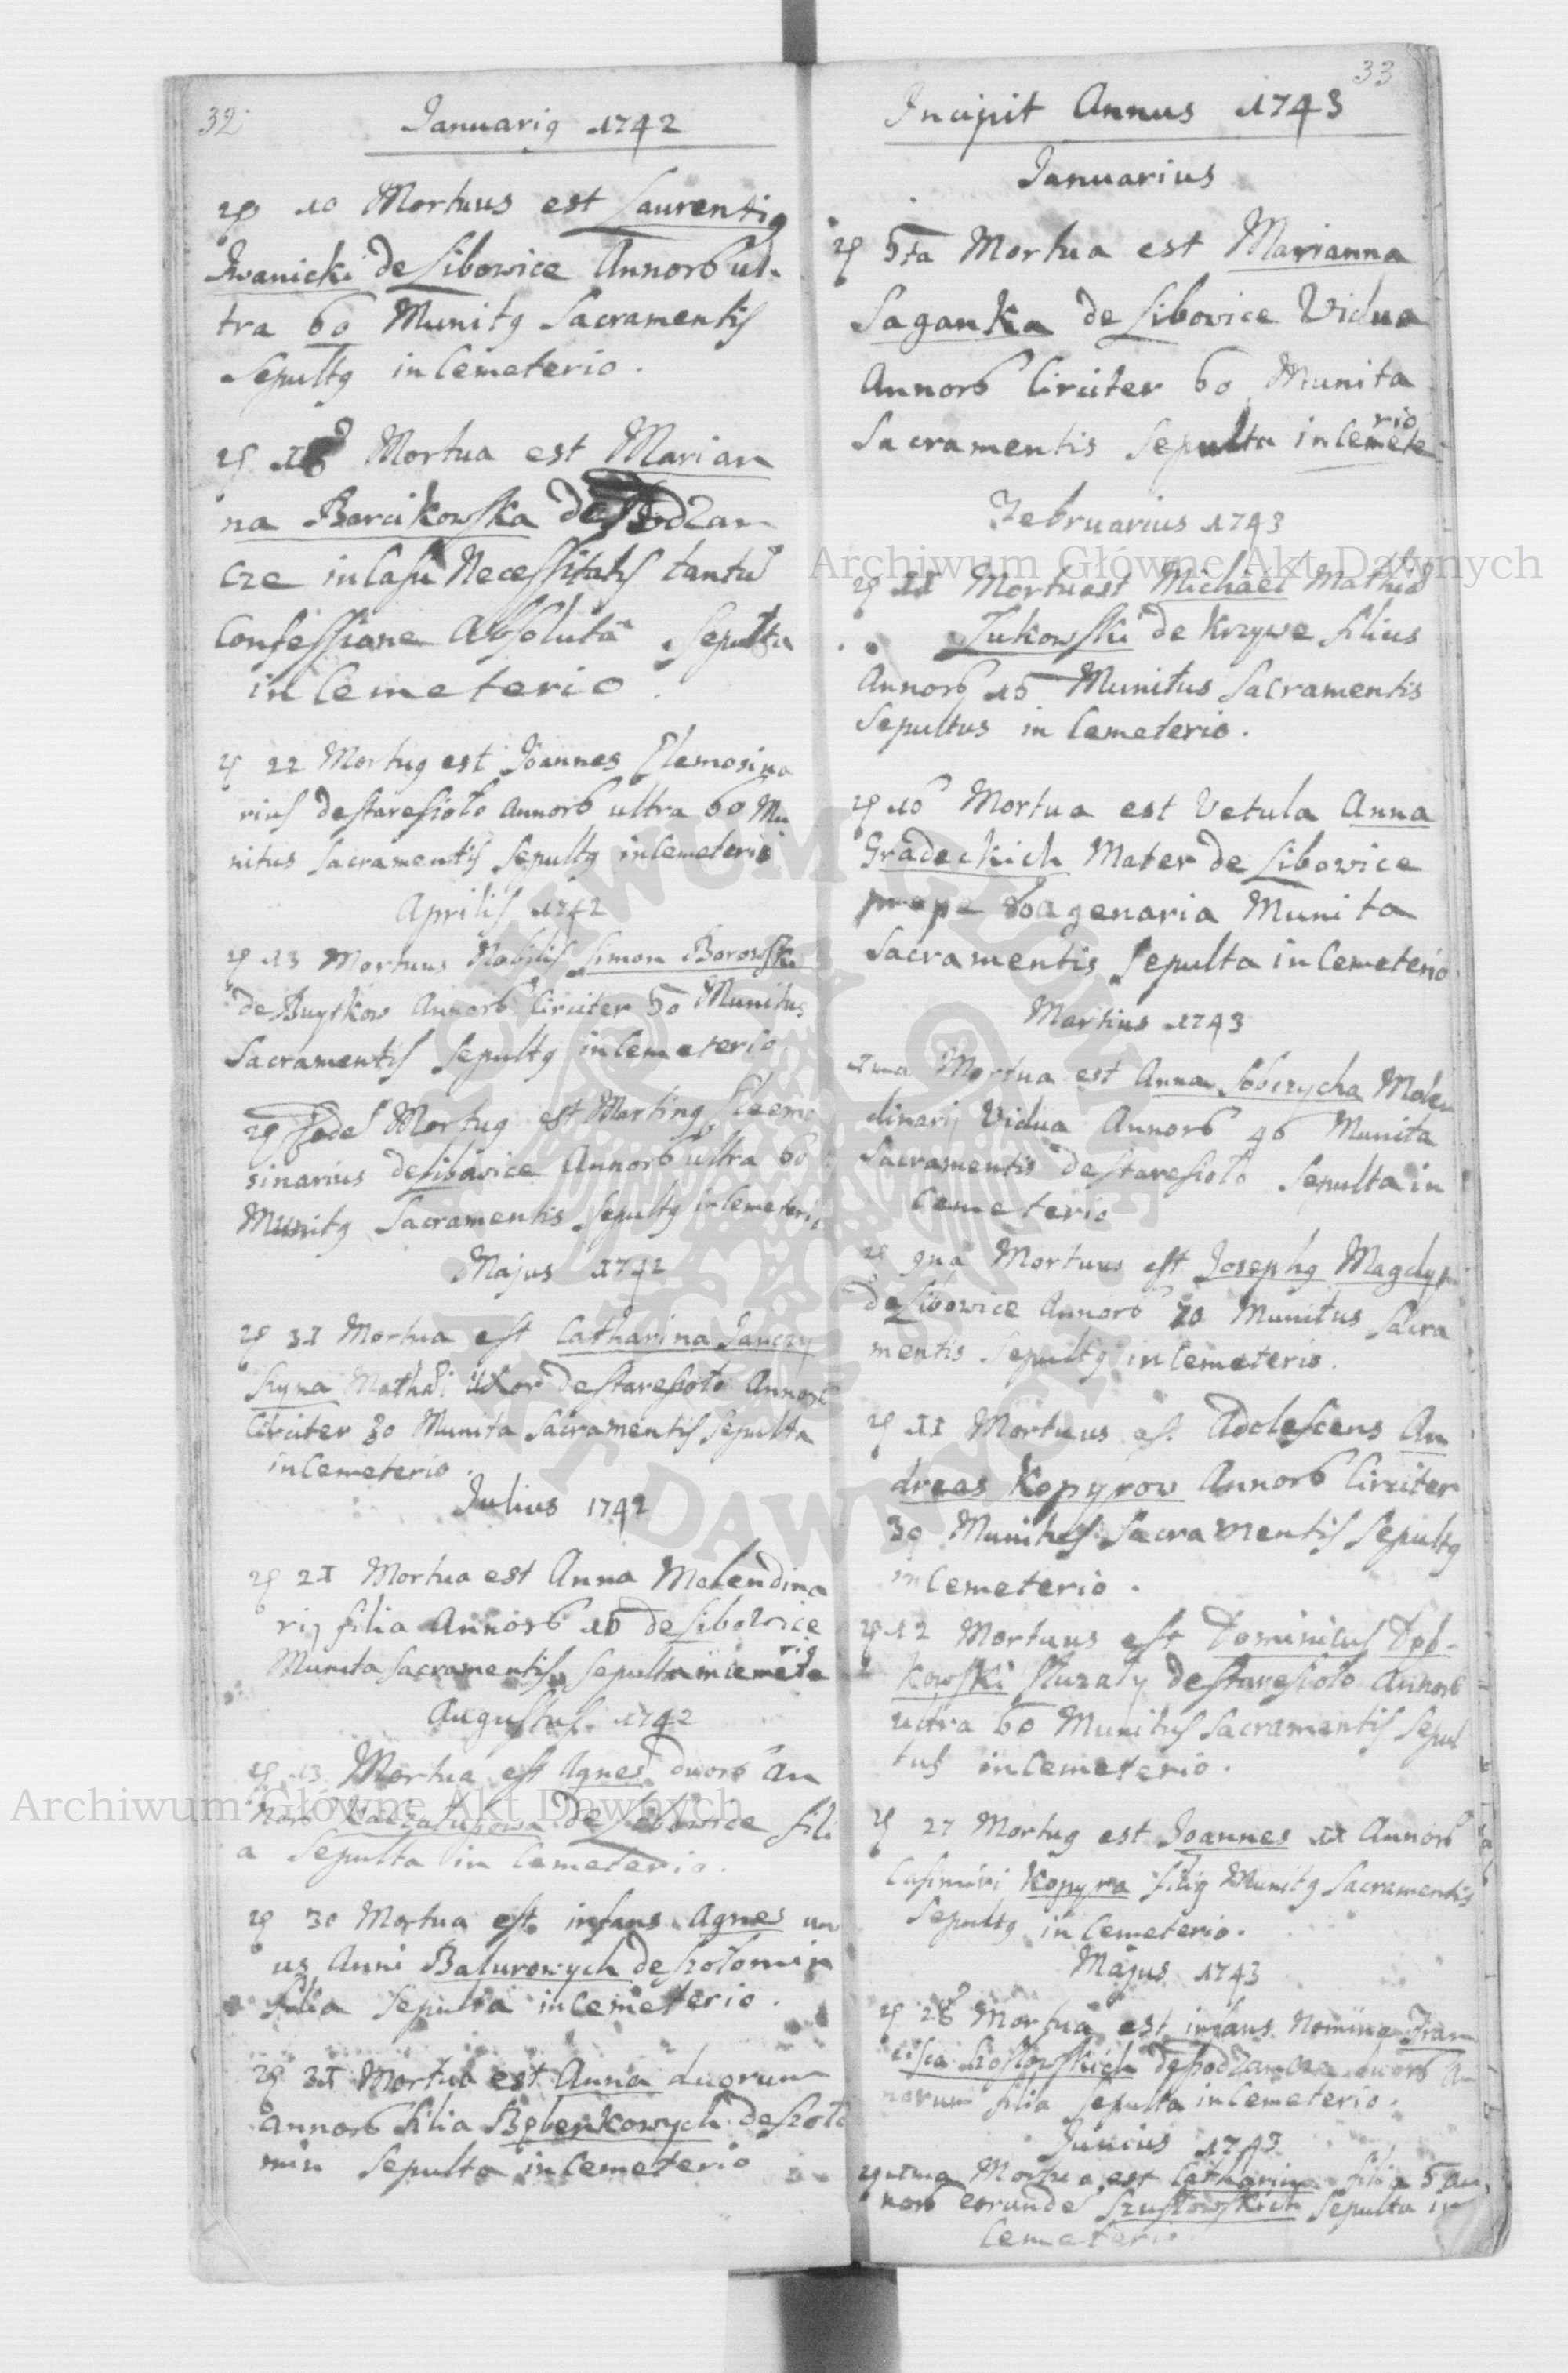 32
Januarig 1742
29 10 Mortuus est Laurentig
Iwanicki de Libowice Annorb ul-
tra 60 Munitg Sacramentis
Sepultg in Cemeterio.
Mortua est Marian
na Barcikowska de Podzam
cze in Casu Necessitatis tantu
Confessione Absoluta Sepulta
in Cemeterio.
22 Mortug est Joannes Elemosina
rius de staresioło Annorb ultra 60 Mu
nitus Sacramentis Sepultg in Cemeterio
Aprilis 1742
29 13 Mortuus Nobilis Simon Borowski
de Buyskow Annorb Circiter 50 Munitus
Sacramentis Sepultg in Cemeterio
29 Mortug est Marting Eleemo
sinarius de Libowice Annorb ultra 60
Munitg Sacramentis Sepultg in Cemeterio
Majus 1742
29 31 Mortua est Catharina Janczy
szyna Mathæi Uxor de staresioło Annorb
Circiter 30 Munita Sacramentis Sepulta
in Cemeterio.
Julius 1742
29 21 Mortua est Anna Molendina
rij filia Annorb 16 de Libowice
Munita Sacramentis Sepulta in Cemete
rio
Augustus 1742
29 13 Mortua est Agnes duorb An
norb de Libowice fili
a Sepulta in Cemeterio.
29 30 Mortua est infans Agnes un
us Anni Balurowych de szołomin
filia Sepulta in Cemeterio.
29 31 Mortua est Anna duorum
annorb filia Bębenkowych de szoło
min Sepulta in Cemeterio
33
Incipit Annus 1743
Januarius
29 5ta Mortua est Marianna
Saganka de Libowice Vidua
Annorb Circiter 60 Munita
Sacramentis Sepulta in Cemete
rio
Februarius 1743
29 11 Mortu est Michael Mathiæ
Zukowski de Krzywe filius
Annorb 15 Munitus Sacramentis
Sepultus in Cemeterio.
29 16 Mortua est Vetula Anna
Gradeckich Mater de Libowice
prope 80agenaria Munita
Sacramentis Sepulta in Cemeterio
Martius 1743
1ma Mortua est Anna Sobczycha Molen
dinarij Vidua Annorb 46 Munita
Sacramentis de staresioło Sepulta in
Cemeterio
29 9na Mortuus est Josephg Magdyn
de Libowice Annorb 70 Munitus Sacra
mentis Sepultg in Cemeterio.
29 11 Mortuus est Adolescens An
dreas Kopyrow Annorb Circiter
30 Munitus Sacramentis Sepultg
in Cemeterio.
29 12 Mortuus est Dominicus Dob-
kowski de staresioło Annorb
ultra 60 Munitus Sacramentis Sepul
tus in Cemeterio.
29 27 Mortug est Joannes 11 Annorb
Casimiri Kopyra filig Munitg Sacramentis
Sepultg in Cemeterio.
Majus 1743
29 28 Mortua est infans Nomine Fran
cisca de Podzamcze duorb An
norum filia Sepulta in Cemeterio.
Junius 1743
29 1ma Mortua est Catharina filia 5 An
norb eorunde Szustowskich Sepulta in
Cemeterio
Archiwum Główne Akt Dawnych
Archiwum Główne Akt Dawnych
ARCHIWUM GŁÓWNE AKT DAWNYCH